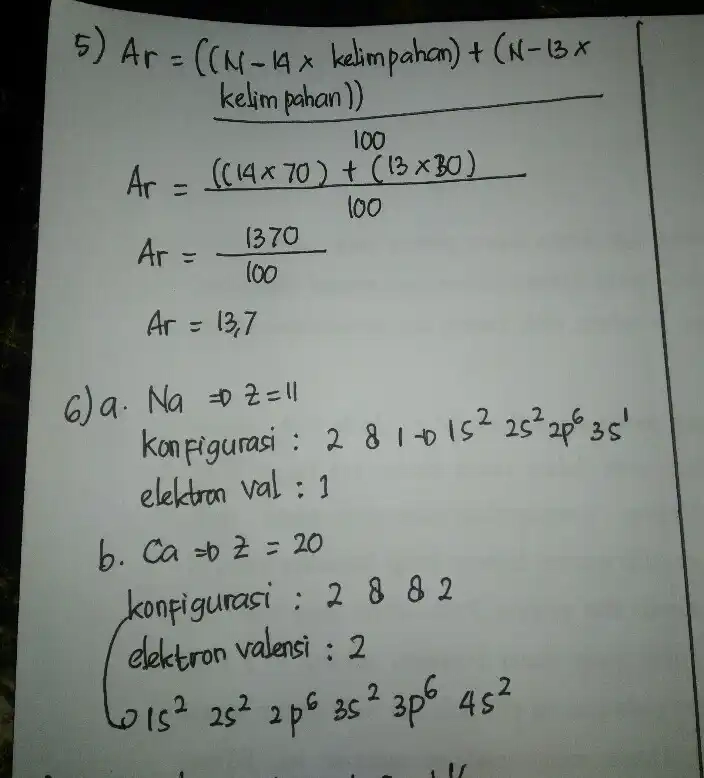 5) Ar = ((N-14 x kelimpahan) + (N-13 x
kelimpahan))
100
Ar = ((14 x 70) + (13 x 30)
100
Ar = 1370
100
Ar = 13,7
6) a. Na ⇒ Z = 11
konfigurasi : 2 8 1 → 1s² 2s² 2p⁶ 3s¹
elektron val : 1
b. Ca ⇒ Z = 20
konfigurasi : 2 8 8 2
elektron valensi : 2
→ 1s² 2s² 2p⁶ 3s² 3p⁶ 4s²